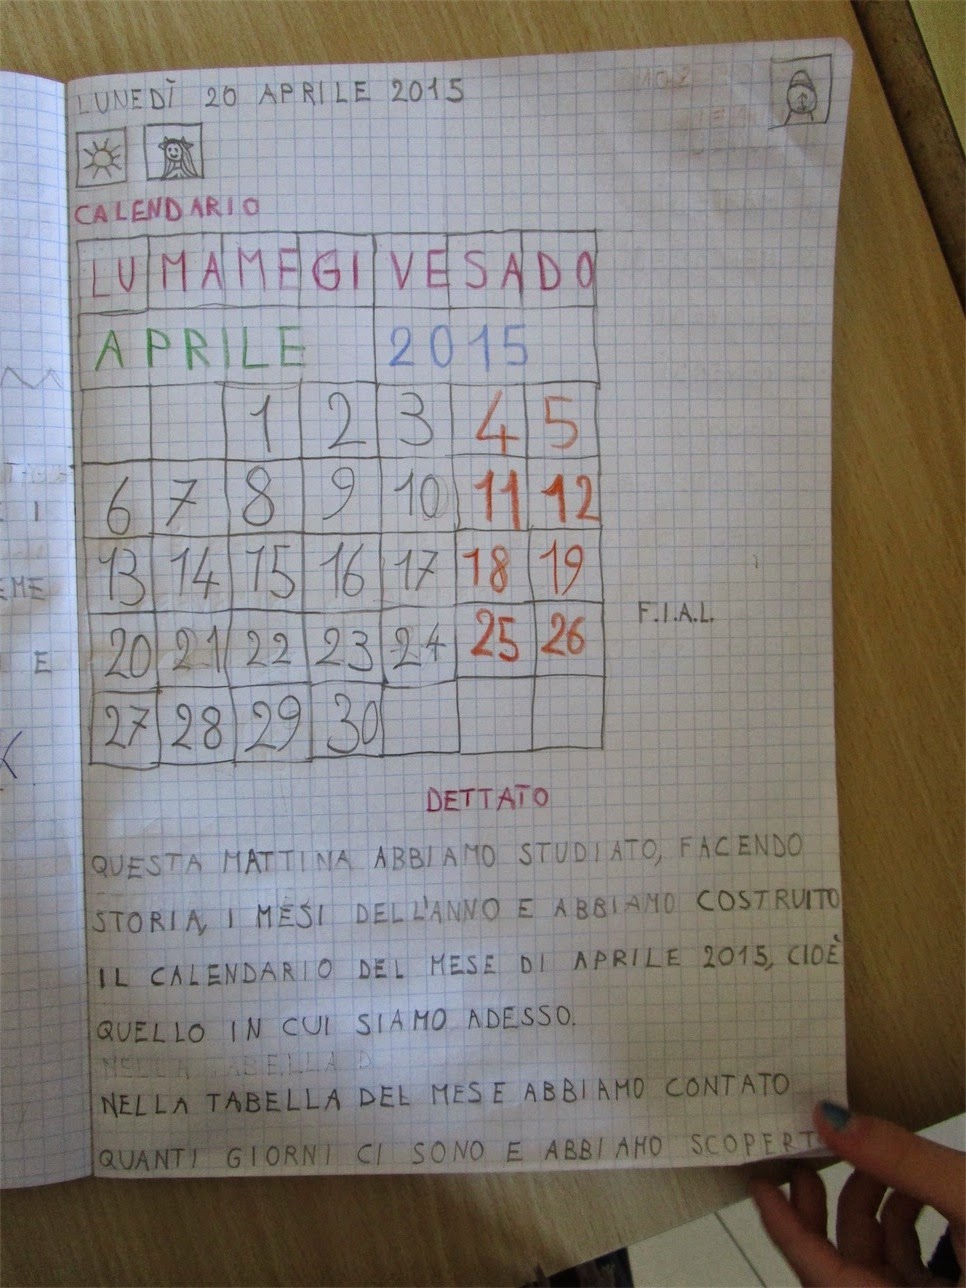 LUNEDÌ 20 APRILE 2015
CALENDARIO
LU MA ME GI VE SA DO
APRILE 2015
1 2 3 4 5
6 7 8 9 10 11 12
13 14 15 16 17 18 19
20 21 22 23 24 25 26
27 28 29 30
F.I.A.L.
DETTATO
QUESTA MATTINA ABBIAMO STUDIATO, FACENDO
STORIA, I MESI DELL'ANNO E ABBIAMO COSTRUITO
IL CALENDARIO DEL MESE DI APRILE 2015, CIOÈ
QUELLO IN CUI SIAMO ADESSO.
NELLA TABELLA D
NELLA TABELLA DEL MESE ABBIAMO CONTATO
QUANTI GIORNI CI SONO E ABBIAMO SCOPERTO
I
EME
E